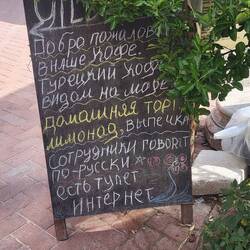 Добро пожаловат
в наше кофе.
Турецкий кофе
видом на море
домашняя торт,
лимонад, выпечка
Сотрудники говорит
по-русски
есть тулет
интернет